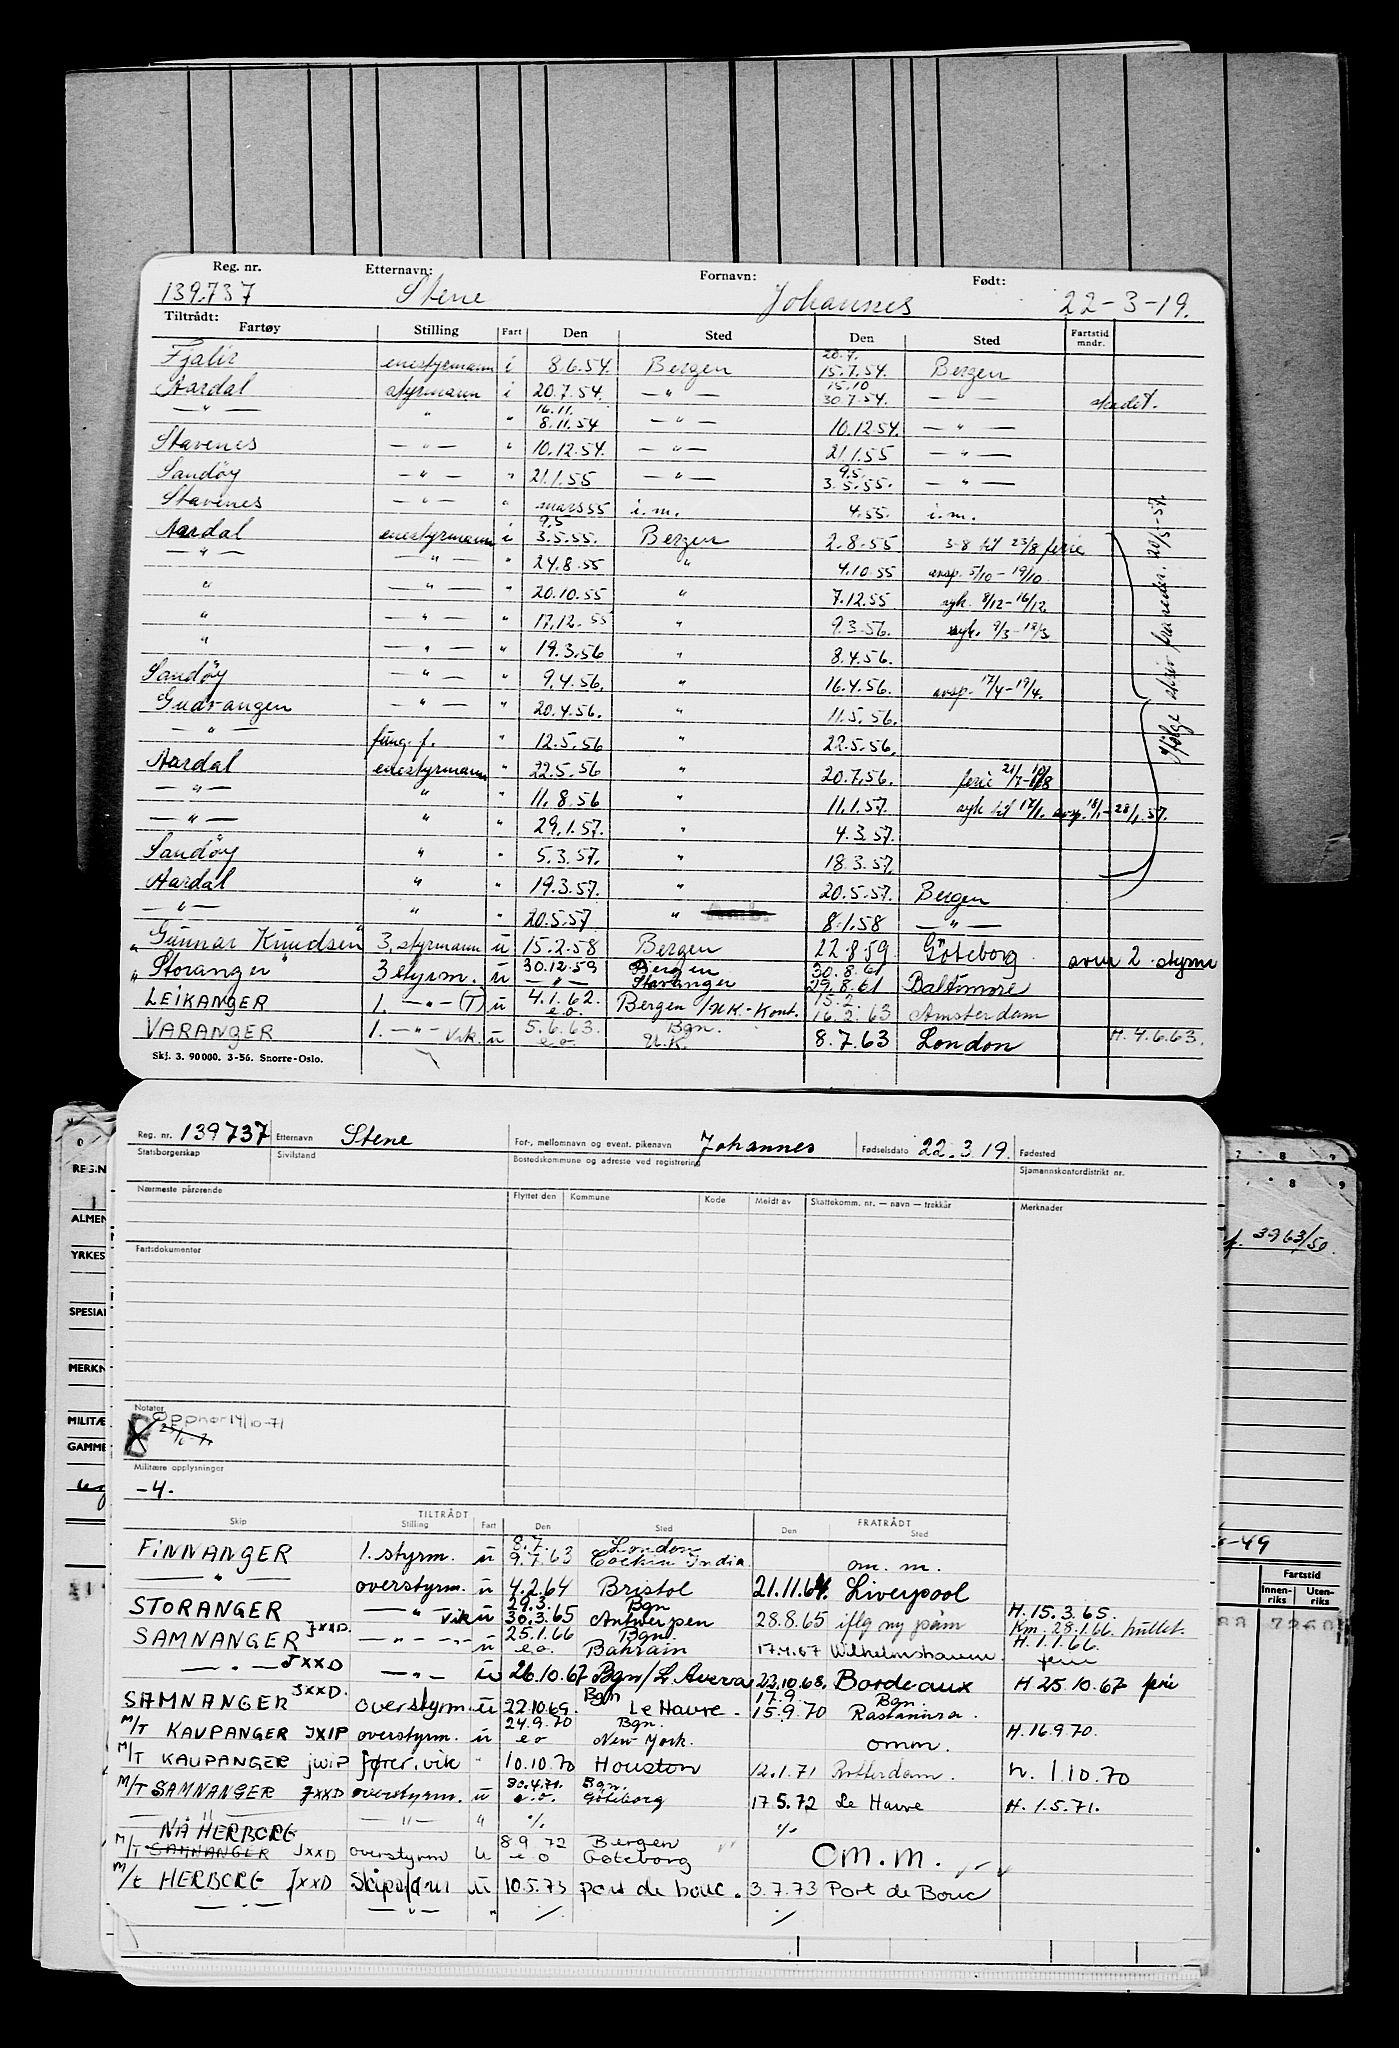 Reg. nr. Etternavn: Fornavn: Født:
139.737 Stene Johannes 22-3-19.
Tiltrådt:
Fartøy Stilling Fart Den Sted Den Sted Fartstid mndr.
Fjalir enestyrmann i 8.6.54. Bergen 20.7. 15.7.54. Bergen
Aardal styrmann i 20.7.54. — " — 15.10 30.7.54. — " — skadet.
— " — " " 16.11. 8.11.54 — " — 10.12.54. — " —
Stavenes — " — " 10.12.54. — " — 21.1.55 — " —
Sandöy — " — " 21.1.55 — " — 9.5. 3.5.55. — " —
Stavenes — " — " mars 55 i.m. 4.55. i.m.
Aardal enestyrmann i 9.5 3.5.55. Bergen 2.8.55 3-8 til 23/8 ferie
— " — — " — " 24.8.55 " 4.10.55 avsp. 5/10 - 19/10
" — " — " 20.10.55 " 7.12.55 syk. 8/12 - 16/12
" — " — " 17.12.55 " 9.3.56. syk. 9/3 - 18/3
" — " — " 19.3.56 " 8.4.56.
Sandöy — " — " 9.4.56. " 16.4.56. avsp. 17/4 - 19/4.
Gudvangen — " — " 20.4.56. " 11.5.56.
— " — fung. f. " 12.5.56 " 22.5.56.
Aardal enestyrmann " 22.5.56 " 20.7.56. ferie 21/7 - 10/8
— " — " " 11.8.56 " 11.1.57. syk til 17/1. avsp. 18/1 - 28/1.57.
— " — " " 29.1.57. " 4.3.57.
Sandöy " " 5.3.57. " 18.3.57.
Aardal " " 19.3.57. " 20.5.57. Bergen
— " — " " 20.5.57 " 8.1.58 — " —
ifølge skriv fra reder. 20/5-57.
" Gunnar Knudsen " 3. styrmann u 15.2.58 Bergen 22.8.59 Göteborg som 2. styrm
" Storanger " 3 styrm. u 30.12.59 — " — Bergen Stavanger 30.8.61 29.8.61 Baltimore
LEIKANGER 1. — " — (T) u 4.1.62. e.o. Bergen / U.K.-Kont. 15.2. 16.2.63 Amsterdam
VARANGER 1. — " — Vik. u 5.6.63. e.o. Bgn. U.K. 8.7.63 London H. 4.6.63.
Skj. 3. 90 000. 3-56. Snorre-Oslo.
Reg. nr. 139737 Etternavn Stene For-, mellomnavn og event. pikenavn Johannes Fødselsdato 22.3.19. Fødested
Statsborgerskap Sivilstand Bostedskommune og adresse ved registrering Sjømannskontordistrikt nr.
Nærmeste pårørende Flyttet den Kommune Kode Meldt av Skattekomm. nr. — navn — trekkår Merknader
Fartsdokumenter
Notater
Opphør 14/10-71
Militære opplysninger
-4.
TILTRÅDT FRATRÅDT
Skip Stilling Fart Den Sted Den Sted
FINNANGER 1. styrm. u 8.7. 9.7.63 London Cochin India om. m.
— " — overstyrm. u 4.2.64 Bristol 21.11.64. Liverpool
STORANGER — " — Vik u 29.3. 30.3.65 Bgn Antwerpen 28.8.65 iflg ny påm H. 15.3.65.
SAMNANGER JXXD. — " — u 25.1.66 e.o. Bgn. Bahrain 17.4.67 Wilhelmshaven Km. 28.1.66 hullet. H. 1.1.66. ferie
— " — JXXD — " — u 26.10.67 Bgn/L Avera 22.10.68. Bordeaux H 25.10.67 ferie
SAMNANGER JXXD. overstyrm. u 22.10.69. Bgn Le Havre. 17.9. 15.9.70 Bgn.
M/T KAUPANGER JXIP overstyrm. u 24.9.70 e o Bgn. New York. omm. H. 16.9.70.
M/T KAUPANGER JWIP fører. vik " 10.10.70 Houston 12.1.71 Rotterdam. H. 1.10.70
M/T SAMNANGER JXXD overstyrm. u 30.4.71. e.o. Bgn. Göteborg 17.5.72 Le Havre H. 1.5.71.
NÅ HERBORG — " — " % %
M/T SAMNANGER JXXD overstyrm u 8.9.72 e o Bergen Göteborg OM. M.
M/t HERBORG JXXD Skipsfører u 10.5.73 port de bouc. 3.7.73 Port de Bouc
— " — — " — " % %
REG.N
ALMEN
YRKES
SPESIAL
MERKN
MILITÆ
GAMME
7 8 9
8 9
f. 3963/50.
-49
Fartstid
Innen-riks Uten-riks